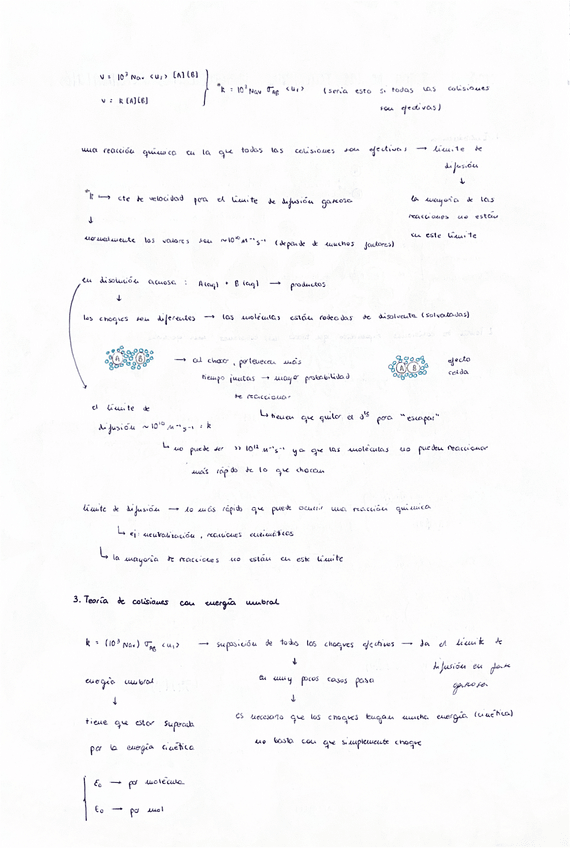 v = 10³ Nav <ur> [A][B]
v = k [A][B]
*k = 10³ Nav σAB <ur> (sería esto si todas las colisiones
son efectivas)
una reacción química en la que todas las colisiones son efectivas → límite de
difusión
↓
*k → cte de velocidad para el límite de difusión gaseosa
la mayoría de las
reacciones no están
en este límite
↓
normalmente los valores son ~10¹⁰ M⁻¹ s⁻¹ (depende de muchos factores)
en disolución acuosa : A(aq) + B(aq) → productos
↓
los choques son diferentes → las moléculas están rodeadas de disolvente (solvatadas)
A B
→ al chocar, permanecen más
tiempo juntas → mayor probabilidad
de reaccionar
A B
efecto
celda
↳ tienen que quitar el para "escapar"
el límite de
difusión ~10¹⁰ M⁻¹ s⁻¹ = k
↳ no puede ser >> 10¹⁰ M⁻¹ s⁻¹ ya que las moléculas no pueden reaccionar
más rápido de lo que chocan
límite de difusión → lo más rápido que puede ocurrir una reacción química
↳ ej: neutralización, reacciones enzimáticas
↳ la mayoría de reacciones no están en este límite
3. Teoría de colisiones con energía umbral
k = (10³ Nav) σAB <ur> → suposición de todos los choques efectivos → da el límite de
difusión en fase
gaseosa
↓
en muy pocos casos pasa
↓
es necesario que los choques tengan mucha energía (cinética)
no basta con que simplemente choque
energía umbral
↓
tiene que estar superada
por la energía cinética
ε₀ → por molécula
E₀ → por mol